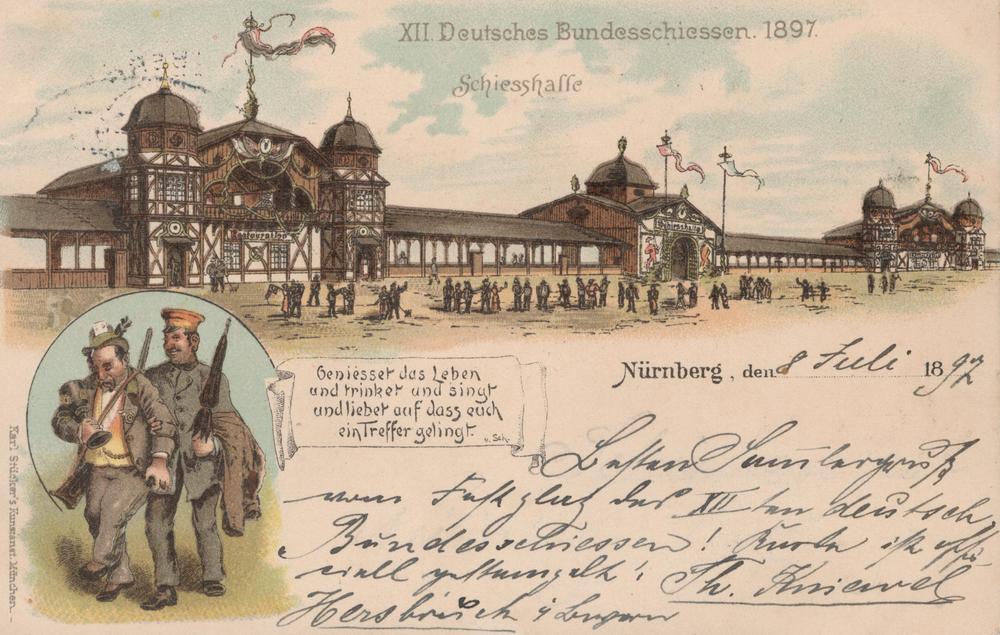 XII. Deutsches Bundesschiessen. 1897.
Schiesshalle
Restauration
Schiesshalle
Geniesset das Leben
und trinket und singt
und liebet auf dass euch
ein Treffer gelingt.
v. Sch.
Nürnberg, den 8 Juli 1897
Besten Samlergruß
vom Festplatz des XII ten deutsch
Bundesschiessen! Karte ist offi
ciell gestempelt! Th. Kniewel
Hersbruck i Bayern
Karl Stücker's Kunstanst. München.